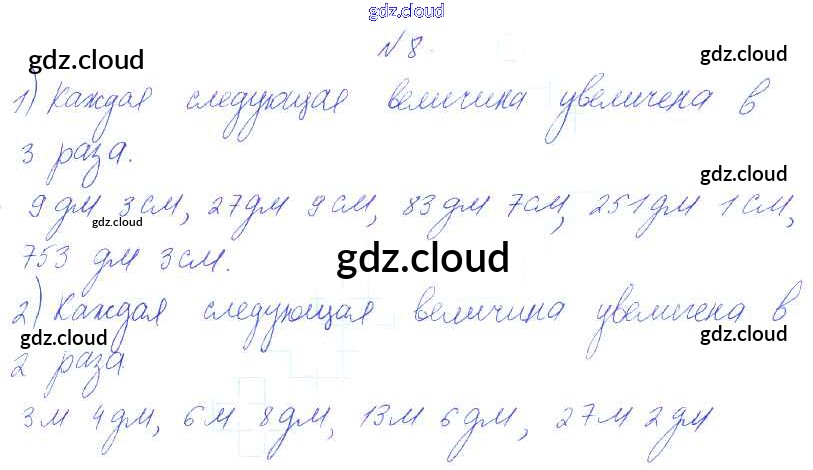 gdz.cloud
№ 8.
gdz.cloud gdz.cloud
1) Каждая следующая величина увеличена в
3 раза.
gdz.cloud
9 дм 3 см, 27 дм 9 см, 83 дм 7 см, 251 дм 1 см,
gdz.cloud
753 дм 3 см.
gdz.cloud
2) Каждая следующая величина увеличена в
gdz.cloud gdz.cloud
2 раза
3 м 4 дм, 6 м 8 дм, 13 м 6 дм, 27 м 2 дм